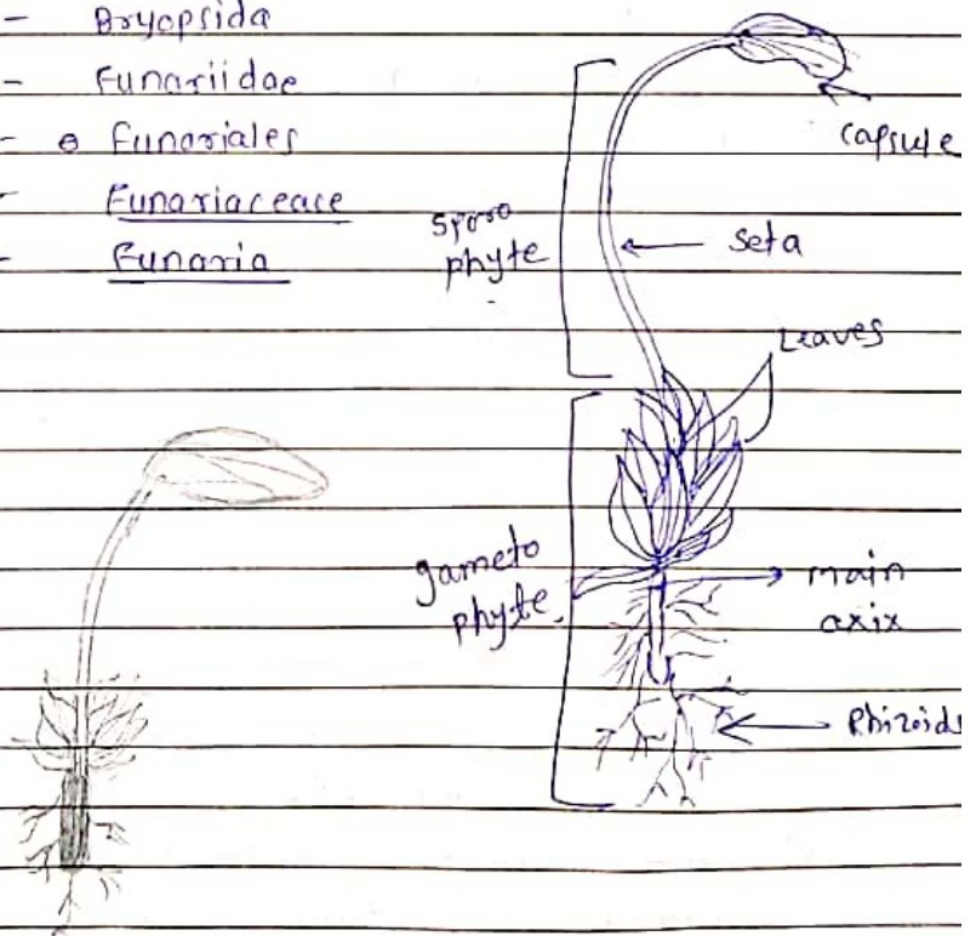 - Bryopsida
- Funariidae
- Funariales
- Funariaceace
- Funaria
capsule
sporo
phyte
seta
Leaves
gameto
phyte
main
axix
Rhizoids